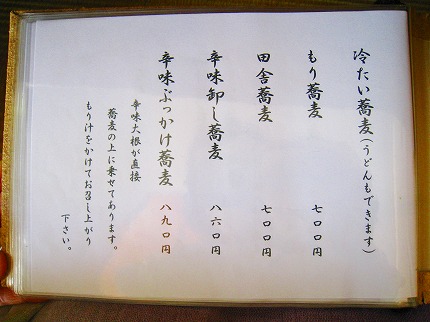 冷たい蕎麦(うどんもできます)
もり蕎麦 七〇〇円
田舎蕎麦 七〇〇円
辛味卸し蕎麦 八六〇円
辛味ぶっかけ蕎麦 八九〇円
辛味大根が直接
蕎麦の上に乗せてあります。
もり汁をかけてお召し上がり
下さい。